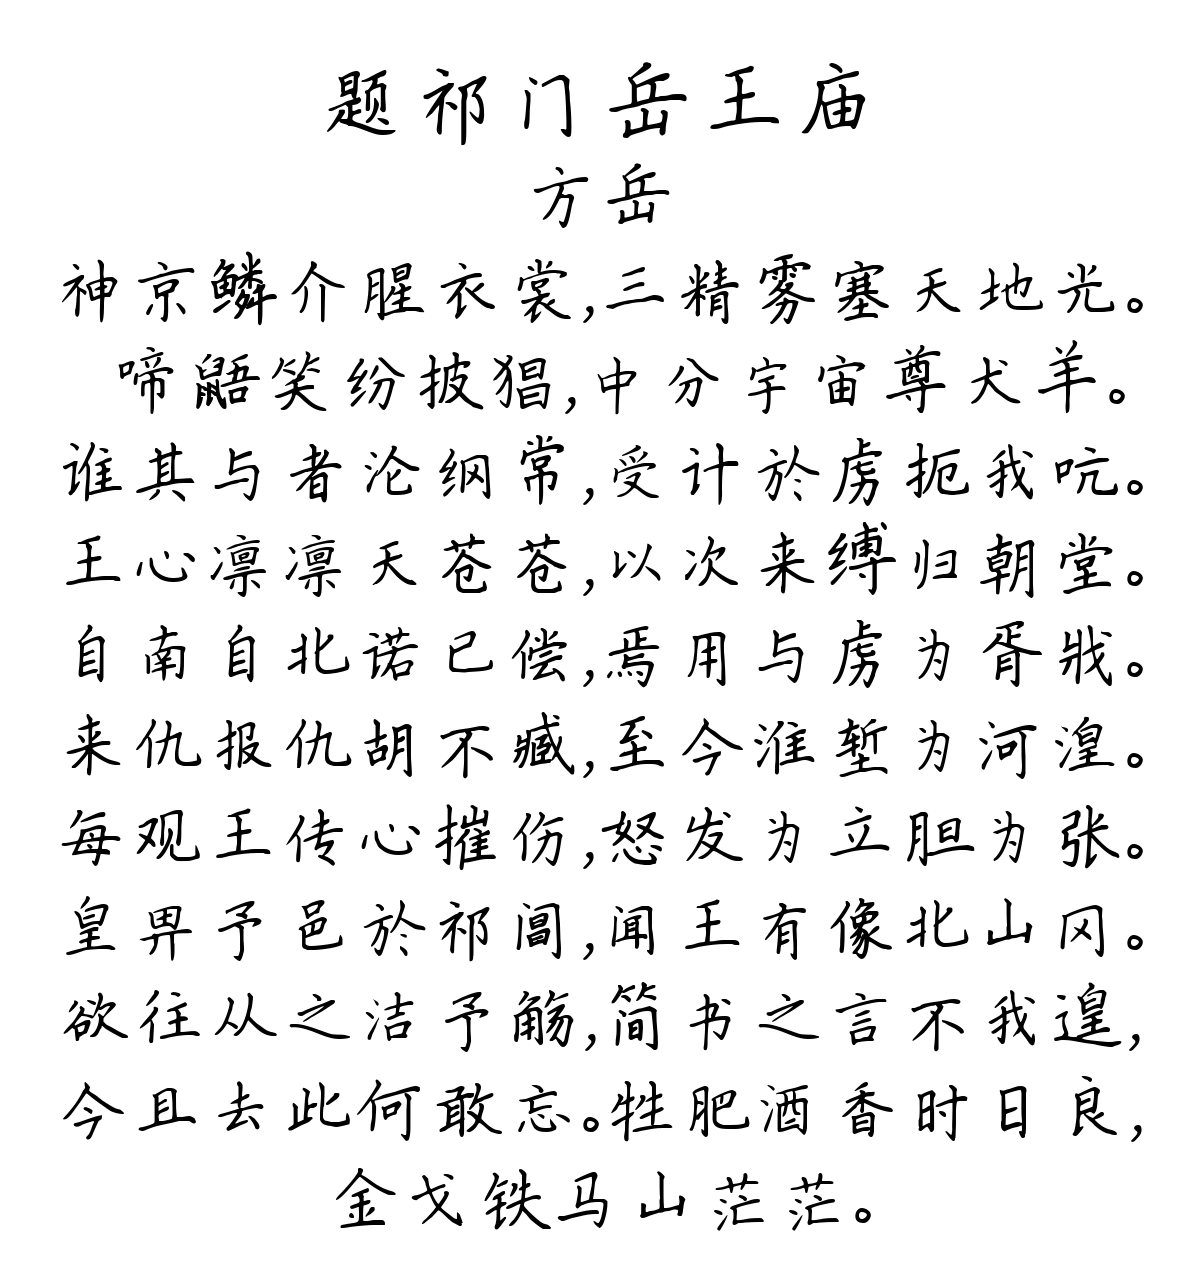 题祁门岳王庙
方岳
神京鳞介腥衣裳,三精雾塞天地光。
啼鼯笑纷披猖,中分宇宙尊犬羊。
谁其与者沦纲常,受计於虏扼我吭。
王心凛凛天苍苍,以次来缚归朝堂。
自南自北诺已偿,焉用与虏为胥戕。
来仇报仇胡不臧,至今淮堑为河湟。
每观王传心摧伤,怒发为立胆为张。
皇畀予邑於祁阊,闻王有像北山冈。
欲往从之洁予觞,简书之言不我遑,
今且去此何敢忘。牲肥酒香时日良,
金戈铁马山茫茫。